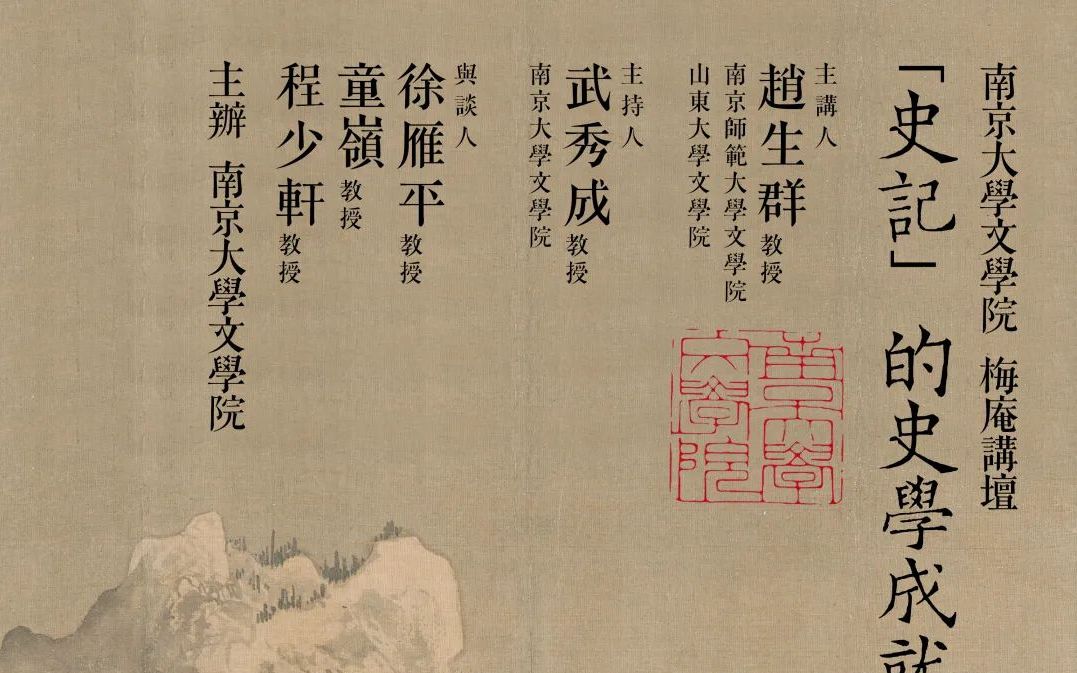 南京大學文學院 梅庵講壇
「史記」的史學成就
主講人
趙生群 教授
南京師範大學文學院
山東大學文學院
主持人
武秀成 教授
南京大學文學院
與談人
徐雁平 教授
童嶺 教授
程少軒 教授
主辦 南京大學文學院
南京大學
文學院